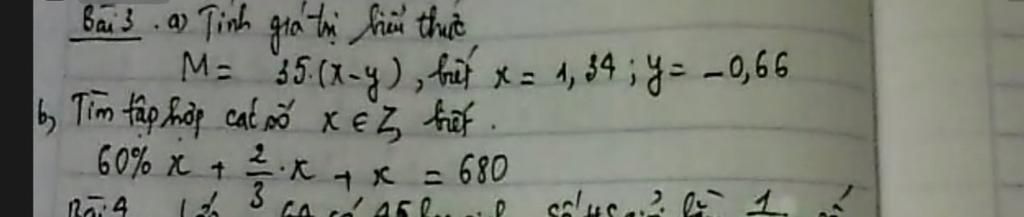 Bài 3. a) Tính giá trị biểu thức
M = 35.(x-y), biết x = 1,34; y = -0,66
b) Tìm tập hợp các số x ∈ Z, biết.
60% x + 2/3 . x + x = 680
Bài 4